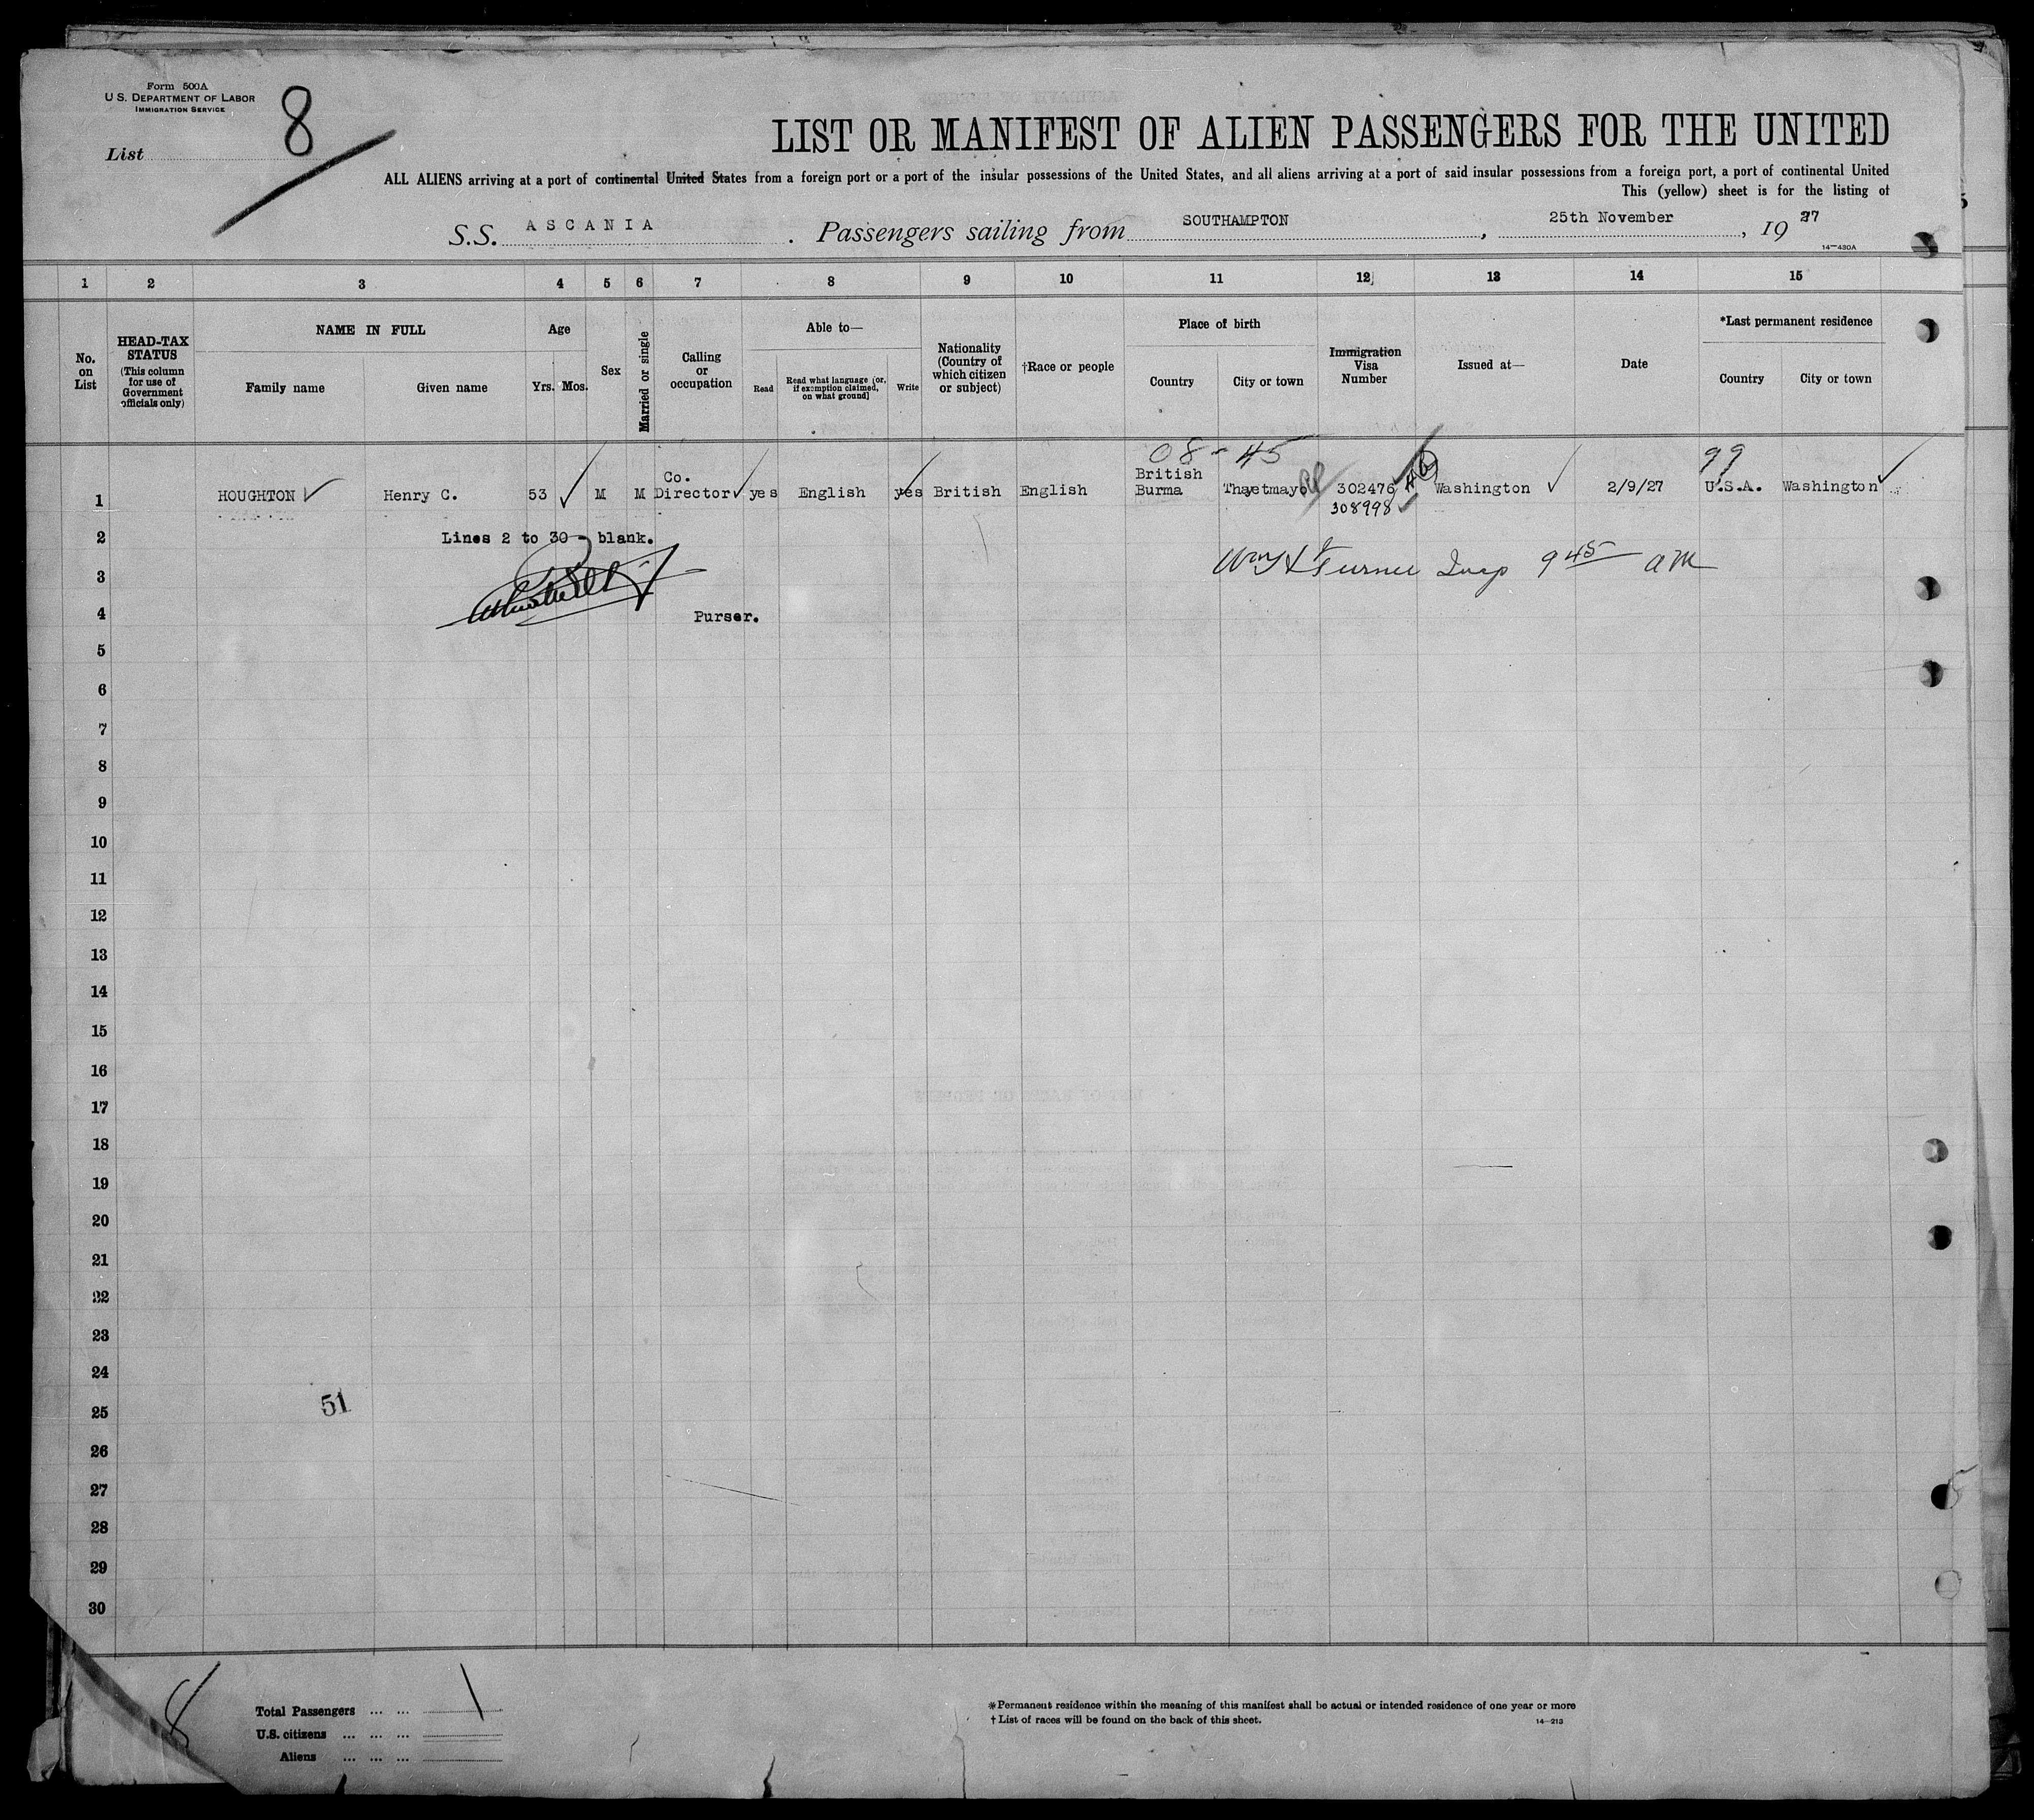 Form 500A
U.S. DEPARTMENT OF LABOR
IMMIGRATION SERVICE
List 8
LIST OR MANIFEST OF ALIEN PASSENGERS FOR THE UNITED
ALL ALIENS arriving at a port of continental United States from a foreign port or a port of the insular possessions of the United States, and all aliens arriving at a port of said insular possessions from a foreign port, a port of continental United
This (yellow) sheet is for the listing of
S.S. ASCANIA . Passengers sailing from SOUTHAMPTON, 25th November, 1927
14—430A
1 2 3 4 5 6 7 8 9 10 11 12 13 14 15
No. on List
HEAD-TAX STATUS
(This column for use of Government officials only)
NAME IN FULL
Family name
Given name
Age
Yrs. Mos.
Sex
Married or single
Calling or occupation
Able to—
Read
Read what language [or, if exemption claimed, on what ground]
Write
Nationality (Country of which citizen or subject)
†Race or people
Place of birth
Country
City or town
Immigration Visa Number
Issued at—
Date
*Last permanent residence
Country
City or town
08-45
99
1 HOUGHTON Henry C. 53 M M Co. Director yes English yes British English British Burma Thayetmayo 302476 Washington 2/9/27 U.S.A. Washington
308998
2 Lines 2 to 30 blank.
3 Turner Insp 9 45 am
4 Purser.
5
6
7
8
9
10
11
12
13
14
15
16
17
18
19
20
21
22
23
24
51
25
26
27
28
29
30
8
Total Passengers ... ... 1
U.S. citizens ... ... ...
Aliens ... ... ...
*Permanent residence within the meaning of this manifest shall be actual or intended residence of one year or more
†List of races will be found on the back of this sheet.
14—213